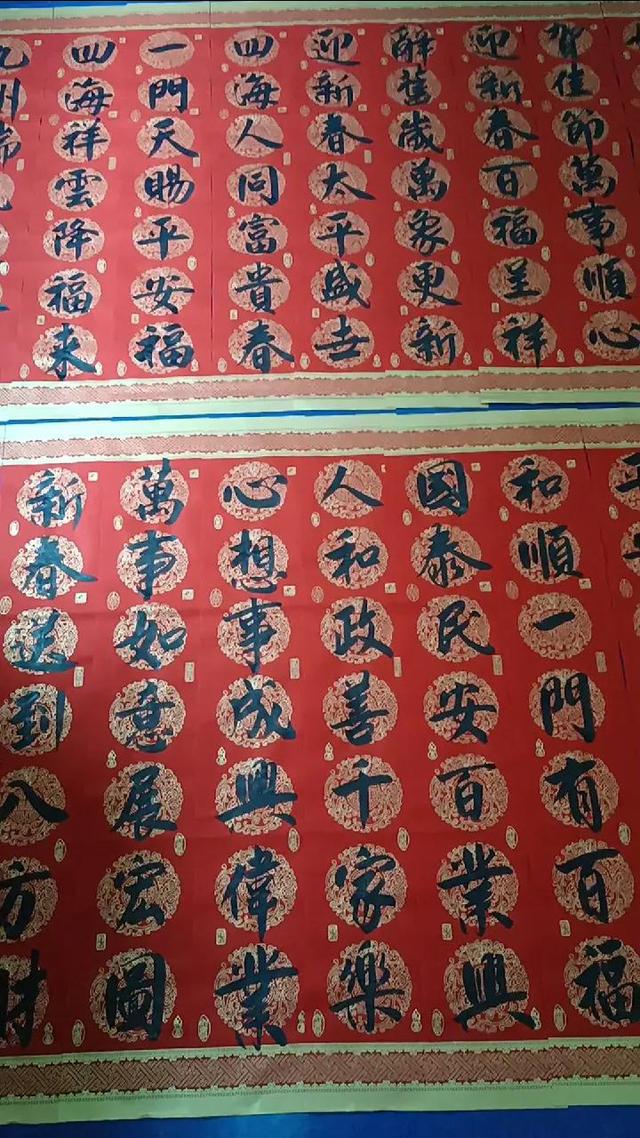 賀佳節萬事順心
迎新春百福呈祥
辭舊歲萬象更新
迎新春太平盛世
四海人同富貴春
一門天賜平安福
四海祥雲降福來
九州瑞
和順一門有百福
國泰民安百業興
人和政善千家樂
心想事成興偉業
萬事如意展宏圖
新春送到八方財